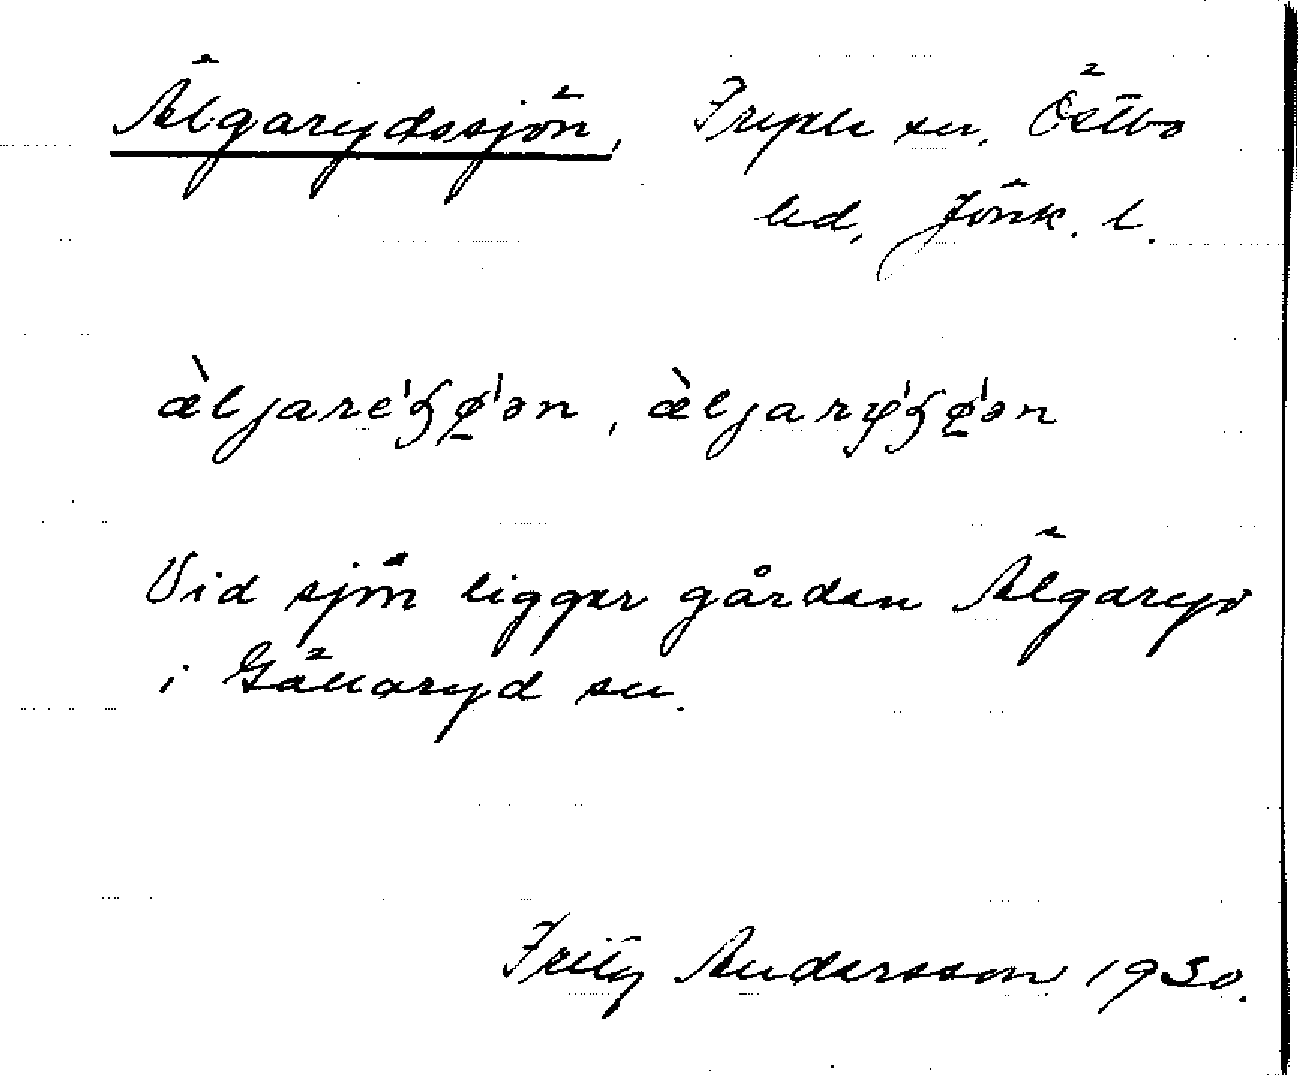 Älgarydssjön, Fryele sn, Östbo
hd, Jönk. l.
æ̀ljare'ʂø̱'ən, æ̀ljary'ʂø̱'ən
Vid sjön ligger gården Älgaryd
i Gällaryd sn.
Fritz Andersson 1930.